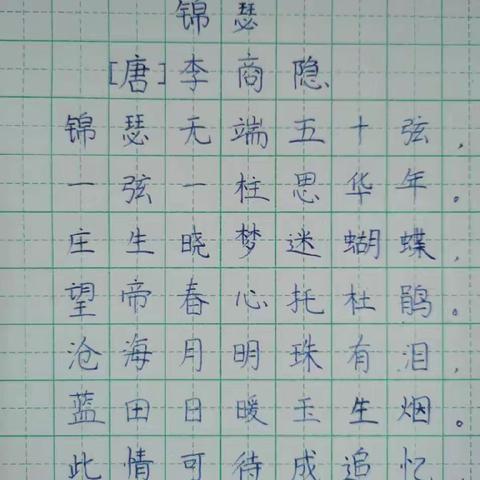 锦瑟
[唐]李商隐
锦瑟无端五十弦,
一弦一柱思华年。
庄生晓梦迷蝴蝶,
望帝春心托杜鹃。
沧海月明珠有泪,
蓝田日暖玉生烟。
此情可待成追忆,